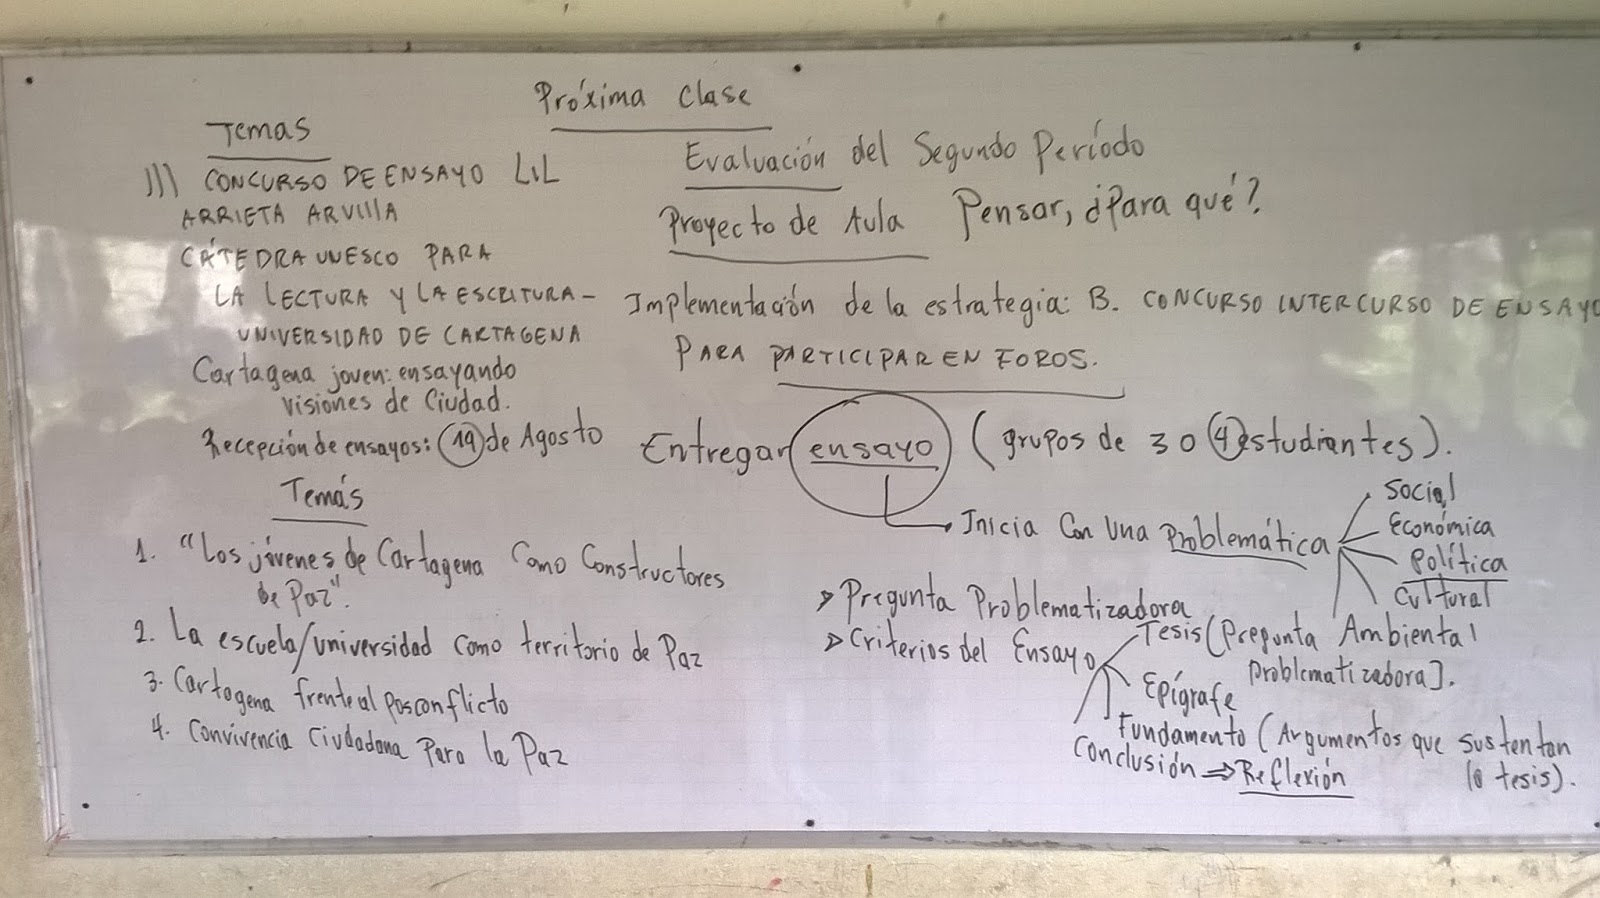 Próxima Clase
Temas
III CONCURSO DE ENSAYO LIL
ARRIETA ARVIlla
CÁTEDRA UNESCO PARA
LA LECTURA Y LA ESCRITURA -
UNIVERSIDAD DE CARTAGENA
Cartagena joven: ensayando
visiones de Ciudad.
Recepción de ensayos: 19 de Agosto
Temás
1. "Los jóvenes de Cartagena Como Constructores
de Paz".
2. La escuela/universidad como territorio de Paz
3. Cartagena frente al posconflicto
4. Convivencia Ciudadana Para la Paz
Evaluación del Segundo Período
Proyecto de Aula Pensar, ¿Para qué?
Implementación de la estrategia: B. CONCURSO INTERCURSO DE ENSAYO
PARA PARTICIPAR EN FOROS.
Entregar ensayo (grupos de 3 o 4 estudiantes).
Inicia Con Una Problemática
Social
Económica
Política
Cultural
Ambiental
> Pregunta Problematizadora
> Criterios del Ensayo
Tesis (Pregunta
Problematizadora).
Epígrafe
Fundamento (Argumentos que sustentan
la tesis).
Conclusión ⇒ Reflexión